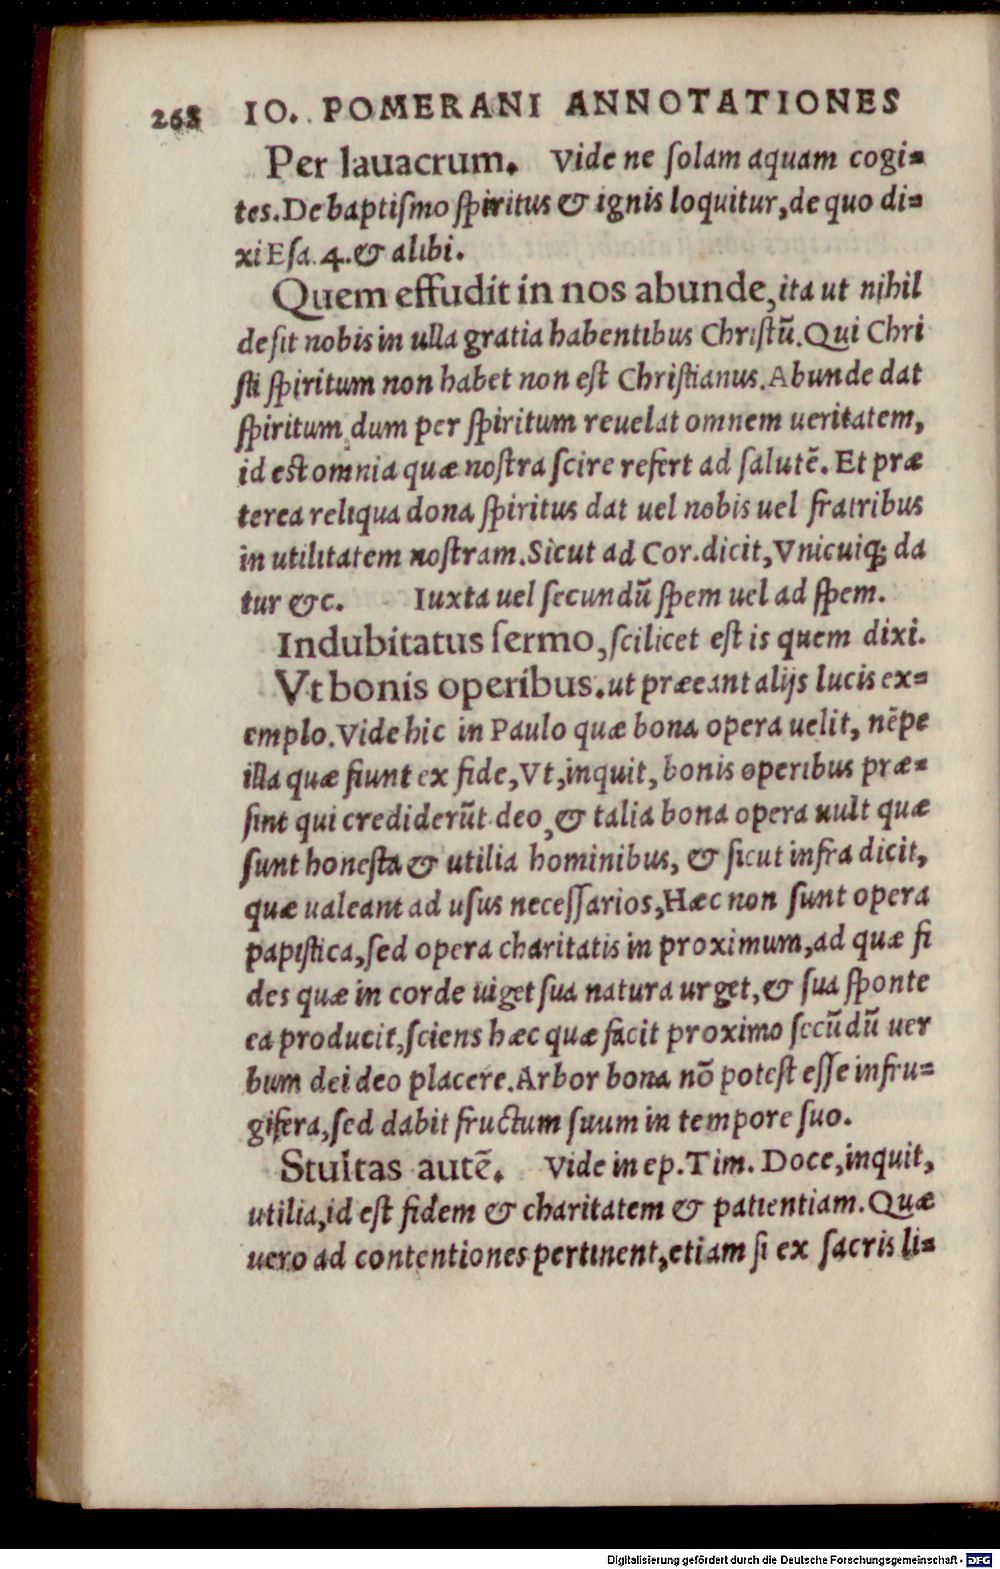 268 IO. POMERANI ANNOTATIONES
Per lauacrum. Vide ne ſolam aquam cogi-
tes. De baptiſmo ſpiritus & ignis loquitur, de quo di-
xi Eſa. 4. & alibi.
Quem effudit in nos abunde, ita ut nihil
deſit nobis in ulla gratia habentibus Chriſtū. Qui Chri
ſti ſpiritum non habet non eſt Chriſtianus. Abunde dat
ſpiritum dum per ſpiritum reuelat omnem ueritatem,
id est omnia quæ noſtra ſcire refert ad ſalutē. Et præ
terea reliqua dona ſpiritus dat uel nobis uel fratribus
in utilitatem noſtram. Sicut ad Cor. dicit, Vnicuiq; da
tur &c. Iuxta uel ſecundū ſpem uel ad ſpem.
Indubitatus ſermo, ſcilicet eſt is quem dixi.
Vt bonis operibus. ut præeant alijs lucis ex-
emplo. Vide hic in Paulo quæ bona opera uelit, nēpe
illa quæ fiunt ex fide, Vt, inquit, bonis operibus præ-
ſint qui crediderūt deo, & talia bona opera uult quæ
ſunt honeſta & utilia hominibus, & ſicut infra dicit,
quæ ualeant ad uſus neceſſarios, Hæc non ſunt opera
papiſtica, ſed opera charitatis in proximum, ad quæ fi
des quæ in corde uiget ſua natura urget, & ſua ſponte
ea producit, ſciens hæc quæ facit proximo ſecūdū uer
bum dei deo placere. Arbor bona nō poteſt eſſe infru-
gifera, ſed dabit fructum ſuum in tempore ſuo.
Stultas autē. Vide in ep. Tim. Doce, inquit,
utilia, id eſt fidem & charitatem & patientiam. Quæ
uero ad contentiones pertinent, etiam ſi ex ſacris li-
Digitalisierung gefördert durch die Deutsche Forschungsgemeinschaft - DFG